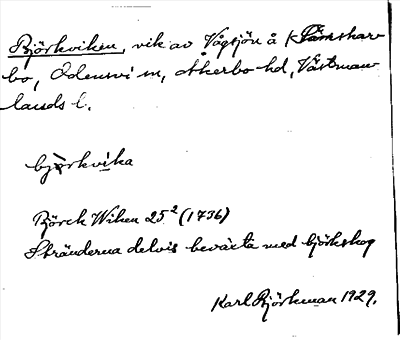 Björkviken, vik av Vågsjön å
bo, Odensvi sn, Åkerbo hd, Västman-
lands l.
bjòrkvika
Björck Wiken 25² (1736)
Stränderna delvis beväxta med björkskog
Karl Björkman 1929.